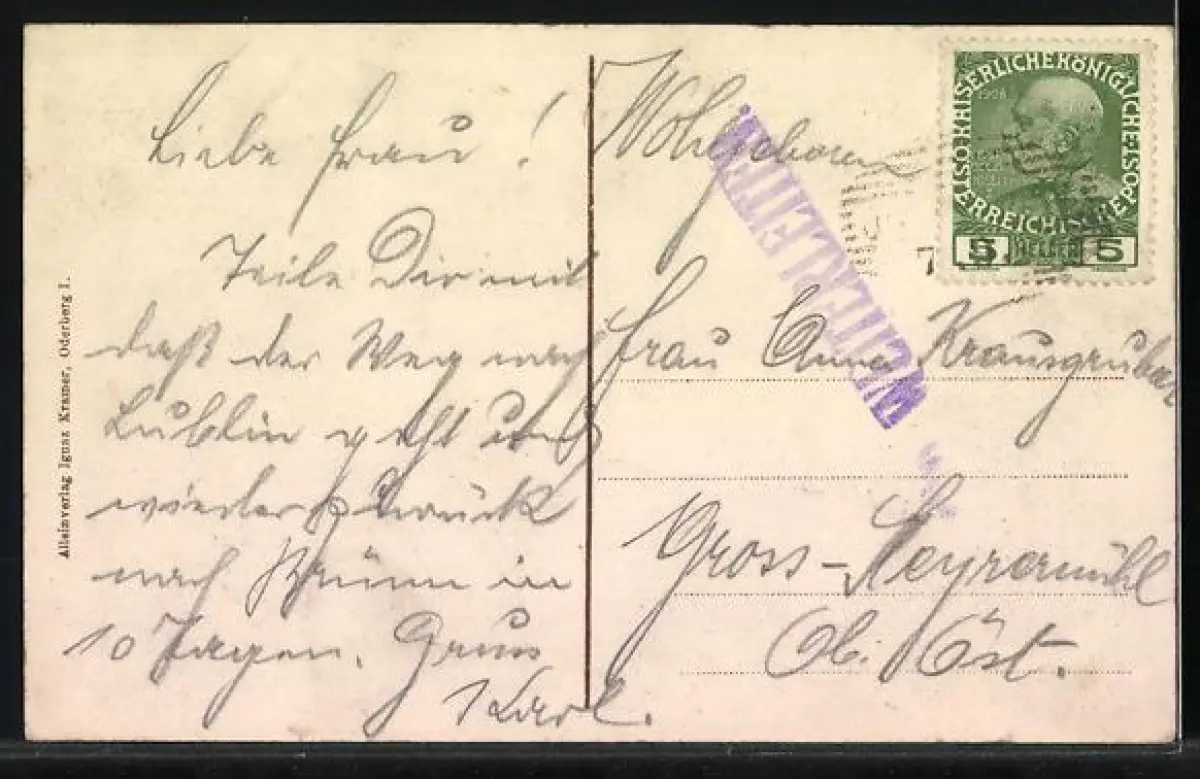 Liebe Frau!
Teile Dir mit
daß der Weg nach
Lublin geht und
wieder zurück
nach Brünn in
10 Tagen. Gruss
Karl.
Alleinverlag Ignaz Kramer, Oderberg I.
Wohlgeboren
Frau Anna Krausgruber
Gross-
Ob. Öst.
WEITERLEITEN.
KAISERLICHE KÖNIGLICHE ÖSTERREICHISCHE POST
1908
5 HELLER 5
7